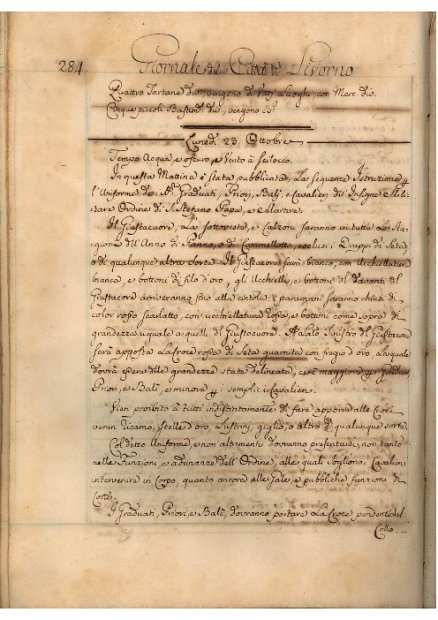 284 Giornale della Città di Livorno
Quattro Tartane dio, vengono di Luoghi con Merc. dio.
Cinque piccoli Bastim. dio, vengono
Lunedì 23. Ottobre
Tempo Acqua, e oscuro, e Vento à Scilocco.
In questa Mattina è stata pubblicata La seguente Istruzione p
l'Uniforme de Graduati, Priori, Balj, e Cavalieri dell'Insigne Mili-
tare Ordine di S. Stefano Papa, e Martire.
Il Giustacuore, La sottoveste, e Calzoni saranno in tutte Le Sta-
gioni dell'Anno di Panno, o di Cammellotto, esclusi i Drappi di Seta, o
di qualunque altra Sorte. Il Giustacuore sarà bianco, con Ucchiellatura
bianca, e bottoni di filo d'oro, gli Ucchielli, e bottone del davanti del
Giustacore arriveranno fino alla cintola. I paramani saranno chiusi di
color rosso scarlatto, con ucchiellatura Rossa, e bottoni come sopra di
grandezza uguale a quelli del Giustacuore. Al Lato Sinistro del Giustacuore
sarà apposta La Croce rossa di Seta guarnita con fregio d'oro La quale
dovrà essere della grandezza stata delineata, cioè maggiore p i Graduati
Priori, e Balj, e minore p i semplici Cavalieri.
Vien proibito à tutti indistintamente di fare apporre alle Croci
verun Ricamo, Stelle d'oro, Lustrini, giglio, o altro di qualunque sorte.
Col detto Uniforme, e non altrimenti dovranno presentarsi, non tanto
nelle Funzioni, e adunanze dell'Ordine, alle quali sogliono i Cavalieri
intervenire in Corpo, quanto ancora alle Gale, e pubbliche funzioni di
Corte.
I Graduati, Priori, e Balj, dovranno portare La Croce pendente dal
Collo